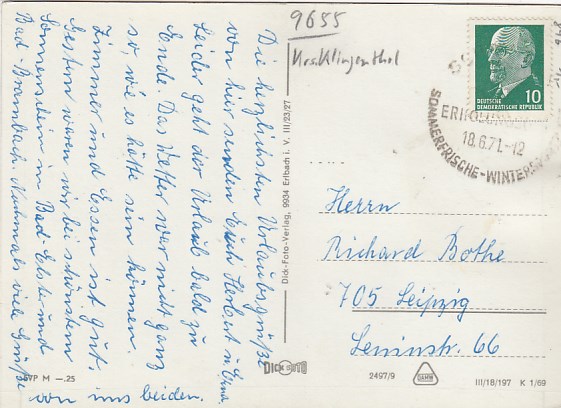 Die herzlichsten Urlaubsgrüße
von hier senden Euch Herbert u. Erna.
Leider geht der Urlaub bald zu
Ende. Das Wetter war nicht ganz
so, wie es hätte sein können.
Zimmer und Essen ist gut.
Gestern waren wir bei schönstem
Sonnenschein in Bad-Elster und
Bad-Brambach. Nochmals viele Grüße
von uns beiden.
9655
Krs. Klingenthal
DEUTSCHE
DEMOKRATISCHE REPUBLIK
10
18.6.71-12
SOMMERFRISCHE-WINTERSPORT
Dick-Foto-Verlag, 9934 Erlbach i. V. III/23/27
Herrn
Richard Bothe
705 Leipzig
Leninstr. 66
EVP M -.25
DICK FOTO
2497/9
III/18/197 K 1/69